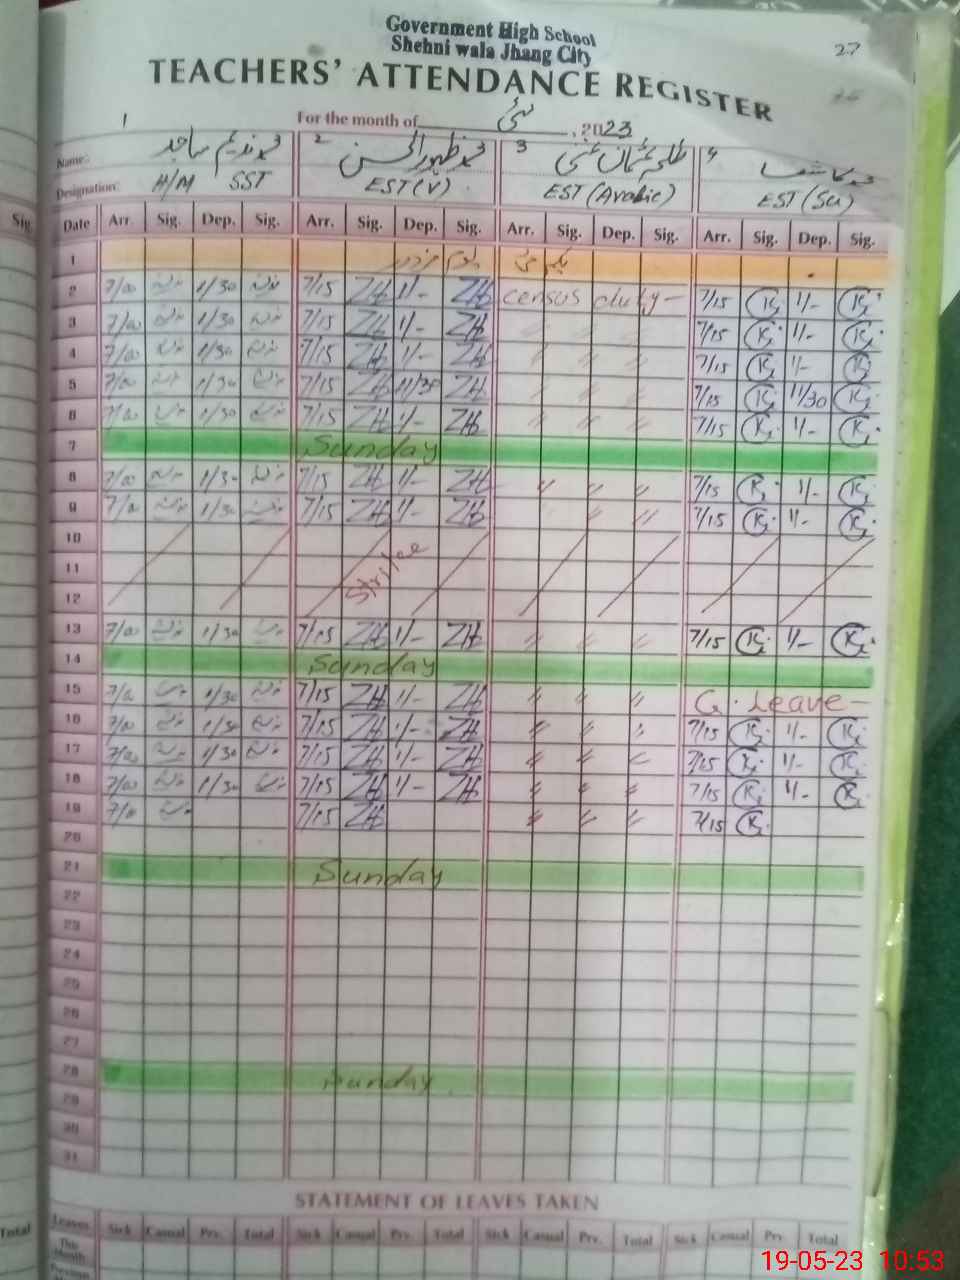 Government High School
Shehni wala Jhang City
27
TEACHERS' ATTENDANCE REGISTER
For the month of مئی, 2023
1 2 3 4
Name: محمد ندیم ساجد محمد ظہور الحسن طلحہ عثمان غنی محمد کاشف
Designation: H/M SST EST (V) EST (Arabic) EST (Sci)
Sig
Date Arr. Sig. Dep. Sig. Arr. Sig. Dep. Sig. Arr. Sig. Dep. Sig. Arr. Sig. Dep. Sig.
1 یکم مئی یوم مزدور
2 7/00 1/30 7/15 ZH 1/- ZH census duty - 7/15 K 1/- K
3 7/00 1/30 7/15 ZH 1/- ZH 〃 〃 〃 7/15 K 1/- K
4 7/00 1/30 7/15 ZH 1/- ZH 〃 〃 〃 7/15 K 1/- K
5 7/00 1/30 7/15 ZH 11/30 ZH 〃 〃 〃 7/15 K 11/30 K
6 7/00 1/30 7/15 ZH 1/- ZH 〃 〃 〃 7/15 K 1/- K
7 Sunday
8 7/00 1/30 7/15 ZH 1/- ZH 〃 〃 〃 7/15 K 1/- K
9 7/00 1/30 7/15 ZH 1/- ZH 〃 〃 7/15 K 1/- K
10
11 Strike
12
13 7/00 1/30 7/15 ZH 1/- ZH 〃 〃 〃 7/15 K 1/- K
14 Sunday
15 7/00 1/30 7/15 ZH 1/- ZH 〃 〃 〃 C. Leave -
16 7/00 1/30 7/15 ZH 1/- ZH 〃 〃 〃 7/15 K 1/- K
17 7/00 1/30 7/15 ZH 1/- ZH 〃 〃 〃 7/15 K 1/- K
18 7/00 1/30 7/15 ZH 1/- ZH 〃 〃 〃 7/15 K 1/- K
19 7/00 7/15 ZH 〃 〃 〃 7/15 K
20
21 Sunday
22
23
24
25
26
27
28 Sunday
29
30
31
STATEMENT OF LEAVES TAKEN
Total
Leaves Sick Casual Prv. Total Sick Casual Prv. Total Sick Casual Prv. Total Sick Casual Prv. Total
This Month
Previous
19-05-23 10:53